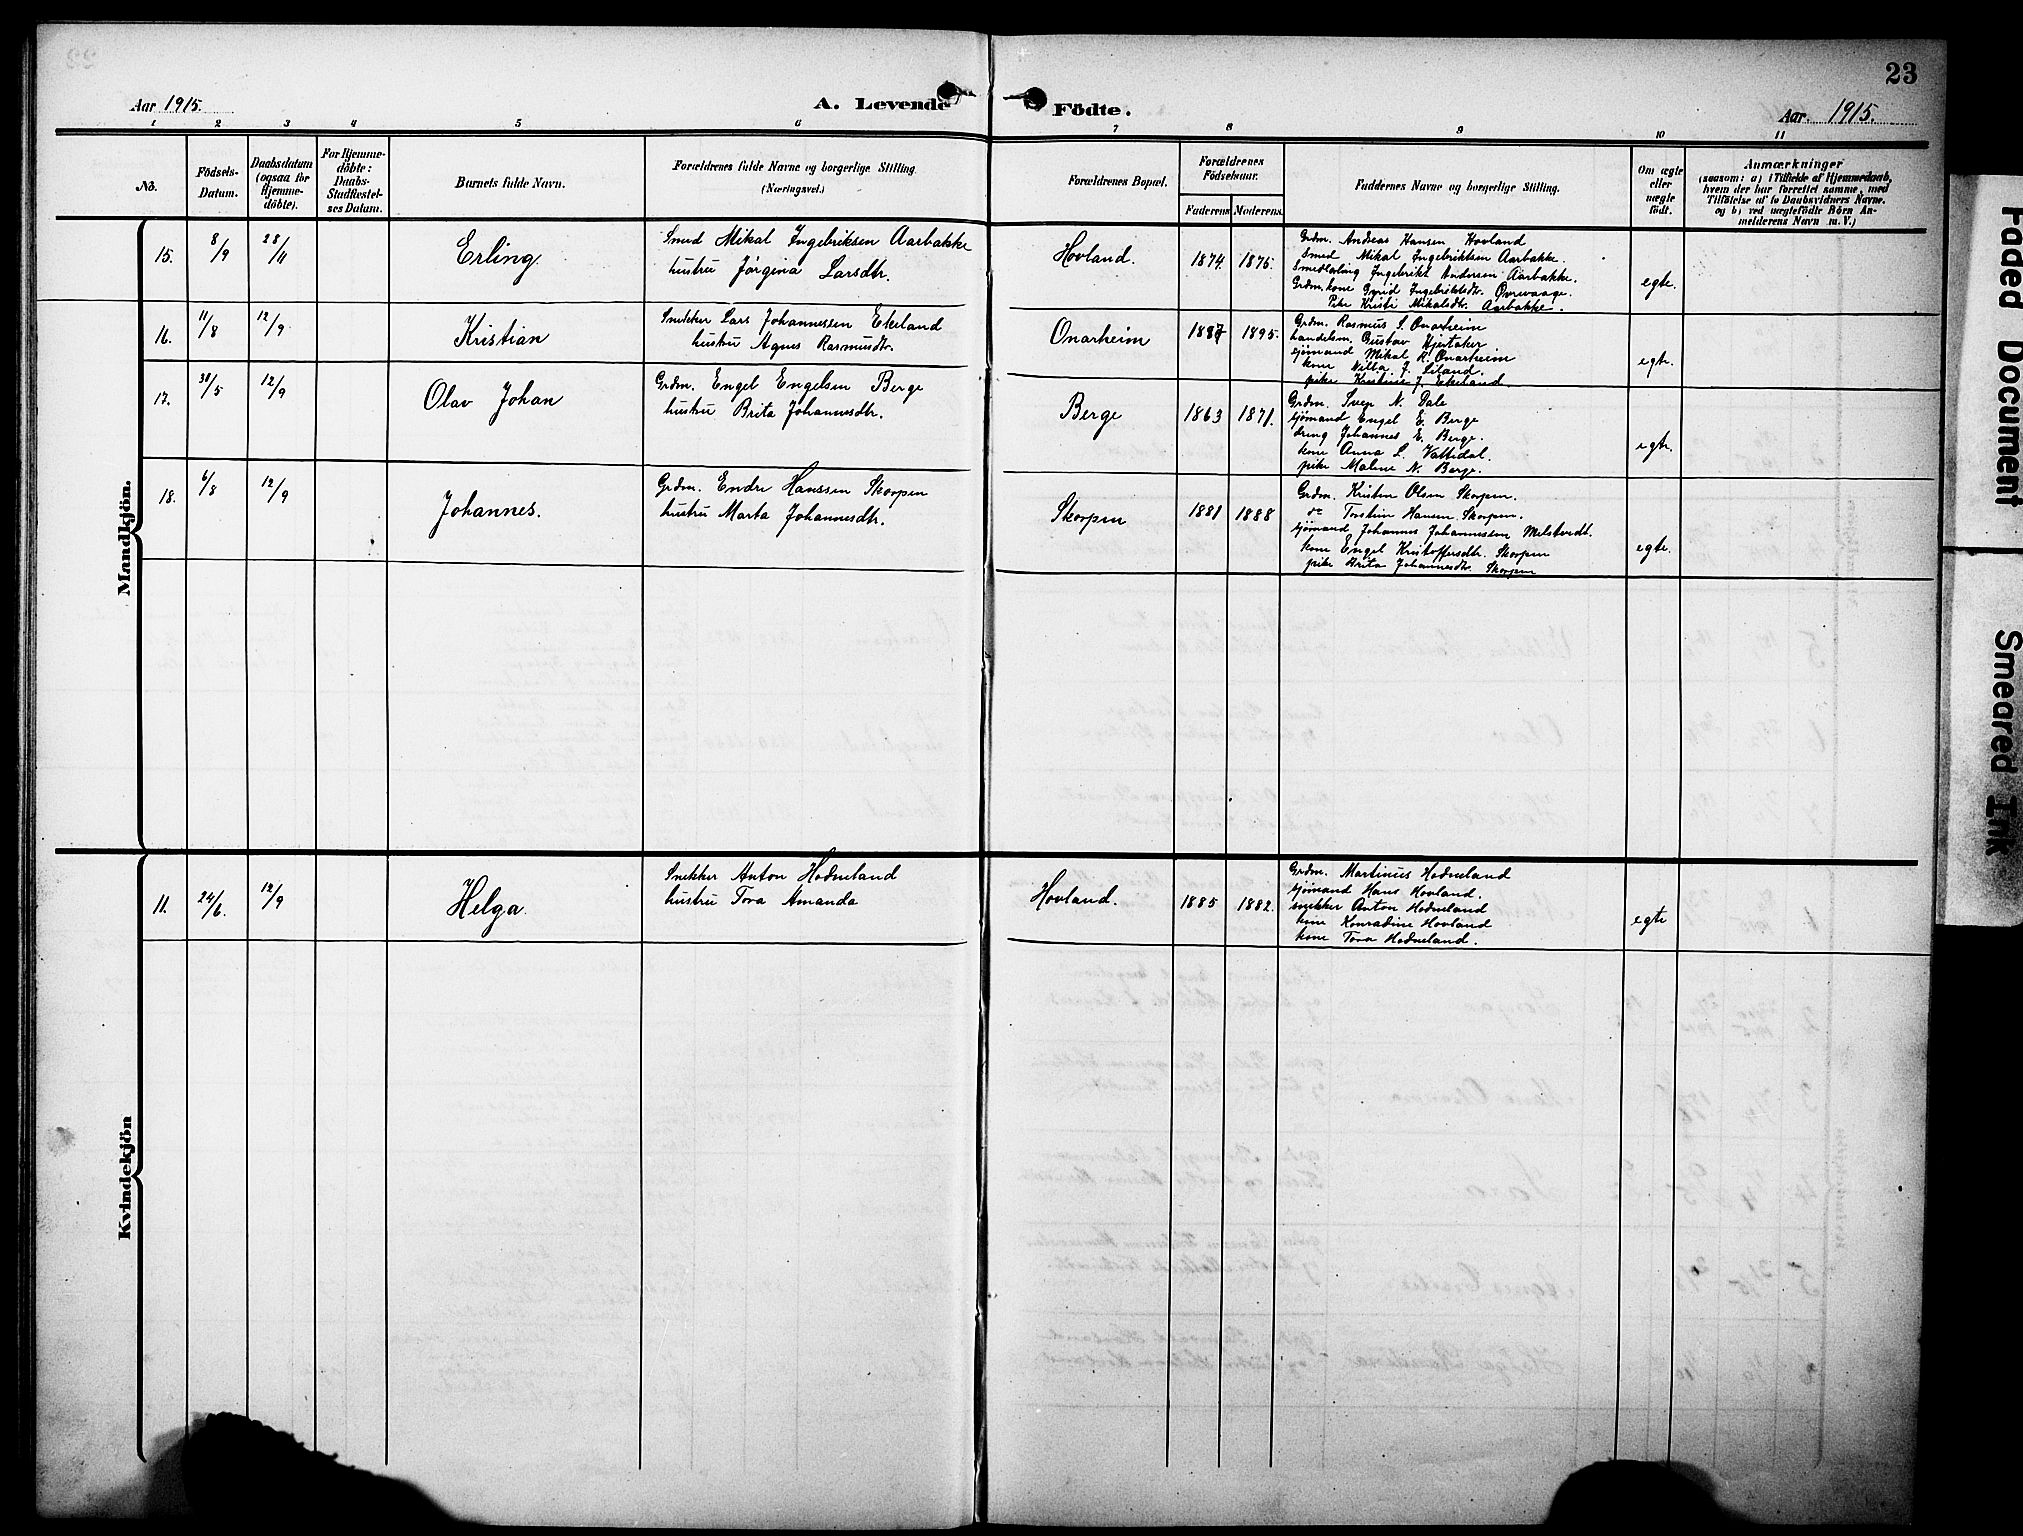 23
Aar 1915.
A. Levende Födte.
Aar. 1915.
1 2 3 4 5 6 7 8 9 10 11
No.
Födsels-
Datum.
Daabsdatum
(ogsaa for
Hjemme-
döbte).
For Hjemme-
döbte:
Daabs-
Stadfæstel-
ses Datum.
Barnets fulde Navn.
Forældrenes fulde Navne og borgerlige Stilling.
(Næringsvei.)
Forældrenes Bopæl.
Forældrenes
Födselsaar.
Faderens
Moderens.
Faddernes Navne og borgerlige Stilling.
Om ægte
eller
uægte
födt.
Anmærkninger
(saasom: a) i Tilfælde af Hjemmedaab,
hvem der har forrettet samme, med
Tilföielse af to Daabsvidners Navne.
og b) ved uægtefödte Börn An-
melderens Navn m. V.)
Mandkjön.
15. 8/9 28/11 Erling
Smed Mikal Ingebriktsen Aarbakke
hustru Jørgina Larsdtr.
Hovland. 1874 1875.
Grdm. Andreas Hansen Hovland
Smed Mikal Ingebriktsen Aarbakke.
Smedlærling Ingebrikt Andersen Aarbakke.
Grdm.kone Gyrid Ingebriktsdtr. Øvrevaage.
Pike Kristi Mikalsdtr. Aarbakke.
egte.
16. 11/8 12/9 Kristian
Snekker Lars Johannessen Ekeland
hustru Agnes Rasmusdtr.
Onarheim 1887 1895.
Grdm. Rasmus S. Onarheim
handelsm. Gustav Hjertaker
sjømand Mikal R. Onarheim
kone Nilla J. Liland.
pike Kristine J. Ekeland
egte.
17. 30/5 12/9 Olav Johan
Grdm. Engel Engelsen Berge
hustru Brita Johannesdtr.
Berge 1863 1871.
Grdm. Sven N. Dale
sjømand Engel E. Berge
dreng Johannes E. Berge.
kone Anna L. Valtidal.
pike Malene N. Berge.
egte.
18. 6/8 12/9 Johannes.
Grdm. Endre Hanssen Skorpen
hustru Marta Johannesdtr.
Skorpen 1881 1888
Grdm. Kristen Olsen Skorpen.
do Torstein Hansen Skorpen.
sjømand Johannes Johannessen Melstvedt.
kone Engel Kristoffersdtr. Skorpen
pike Brita Johannesdtr. Skorpen
egte.
Kvindekjön
11. 24/6. 12/9 Helga.
Snekker Anton Hodneland
hustru Tora Amanda
Hovland. 1885 1882.
Grdm. Martinus Hodneland
sjømand Hans Hovland.
snekker Anton Hodneland
kone Konradine Hovland
kone Tora Hodneland.
egte
Faded Document
Smeared Ink